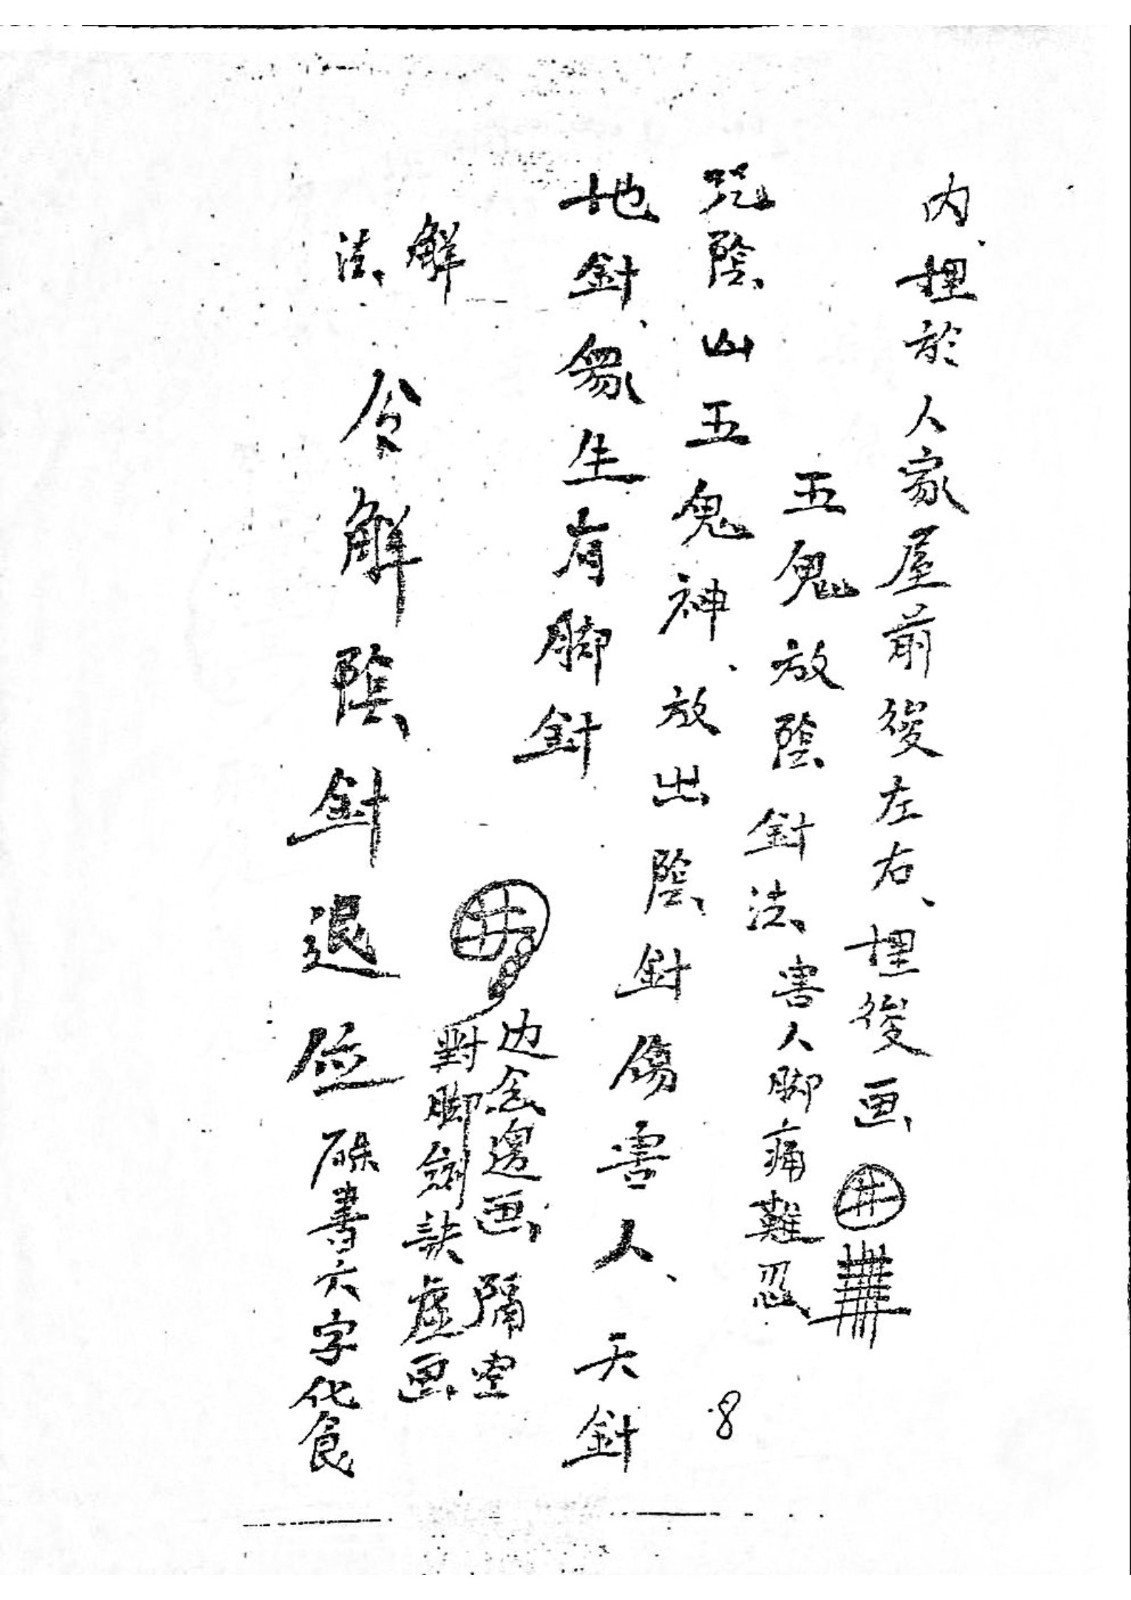 内、埋於人家屋前後左右、埋後画 井
五鬼放陰針法 害人脚痛難忍
咒陰山五鬼神、放出陰針傷害人、天針
地針、象生有脚針
边念邊画 隔空
對脚劍訣虛画
解法
令解陰針退位 硃書六字化食
8